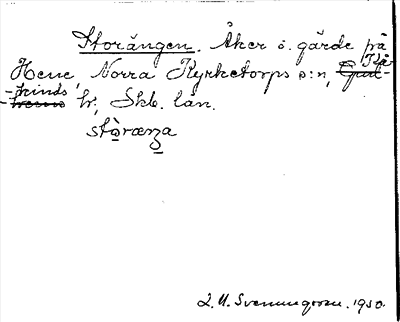 Storängen. Åker i gärde på
Hene, Norra Kyrketorps s:n, Kå-
kinds hr, Skb. län.
stòræŋa
S. U. Svenningsson. 1930.